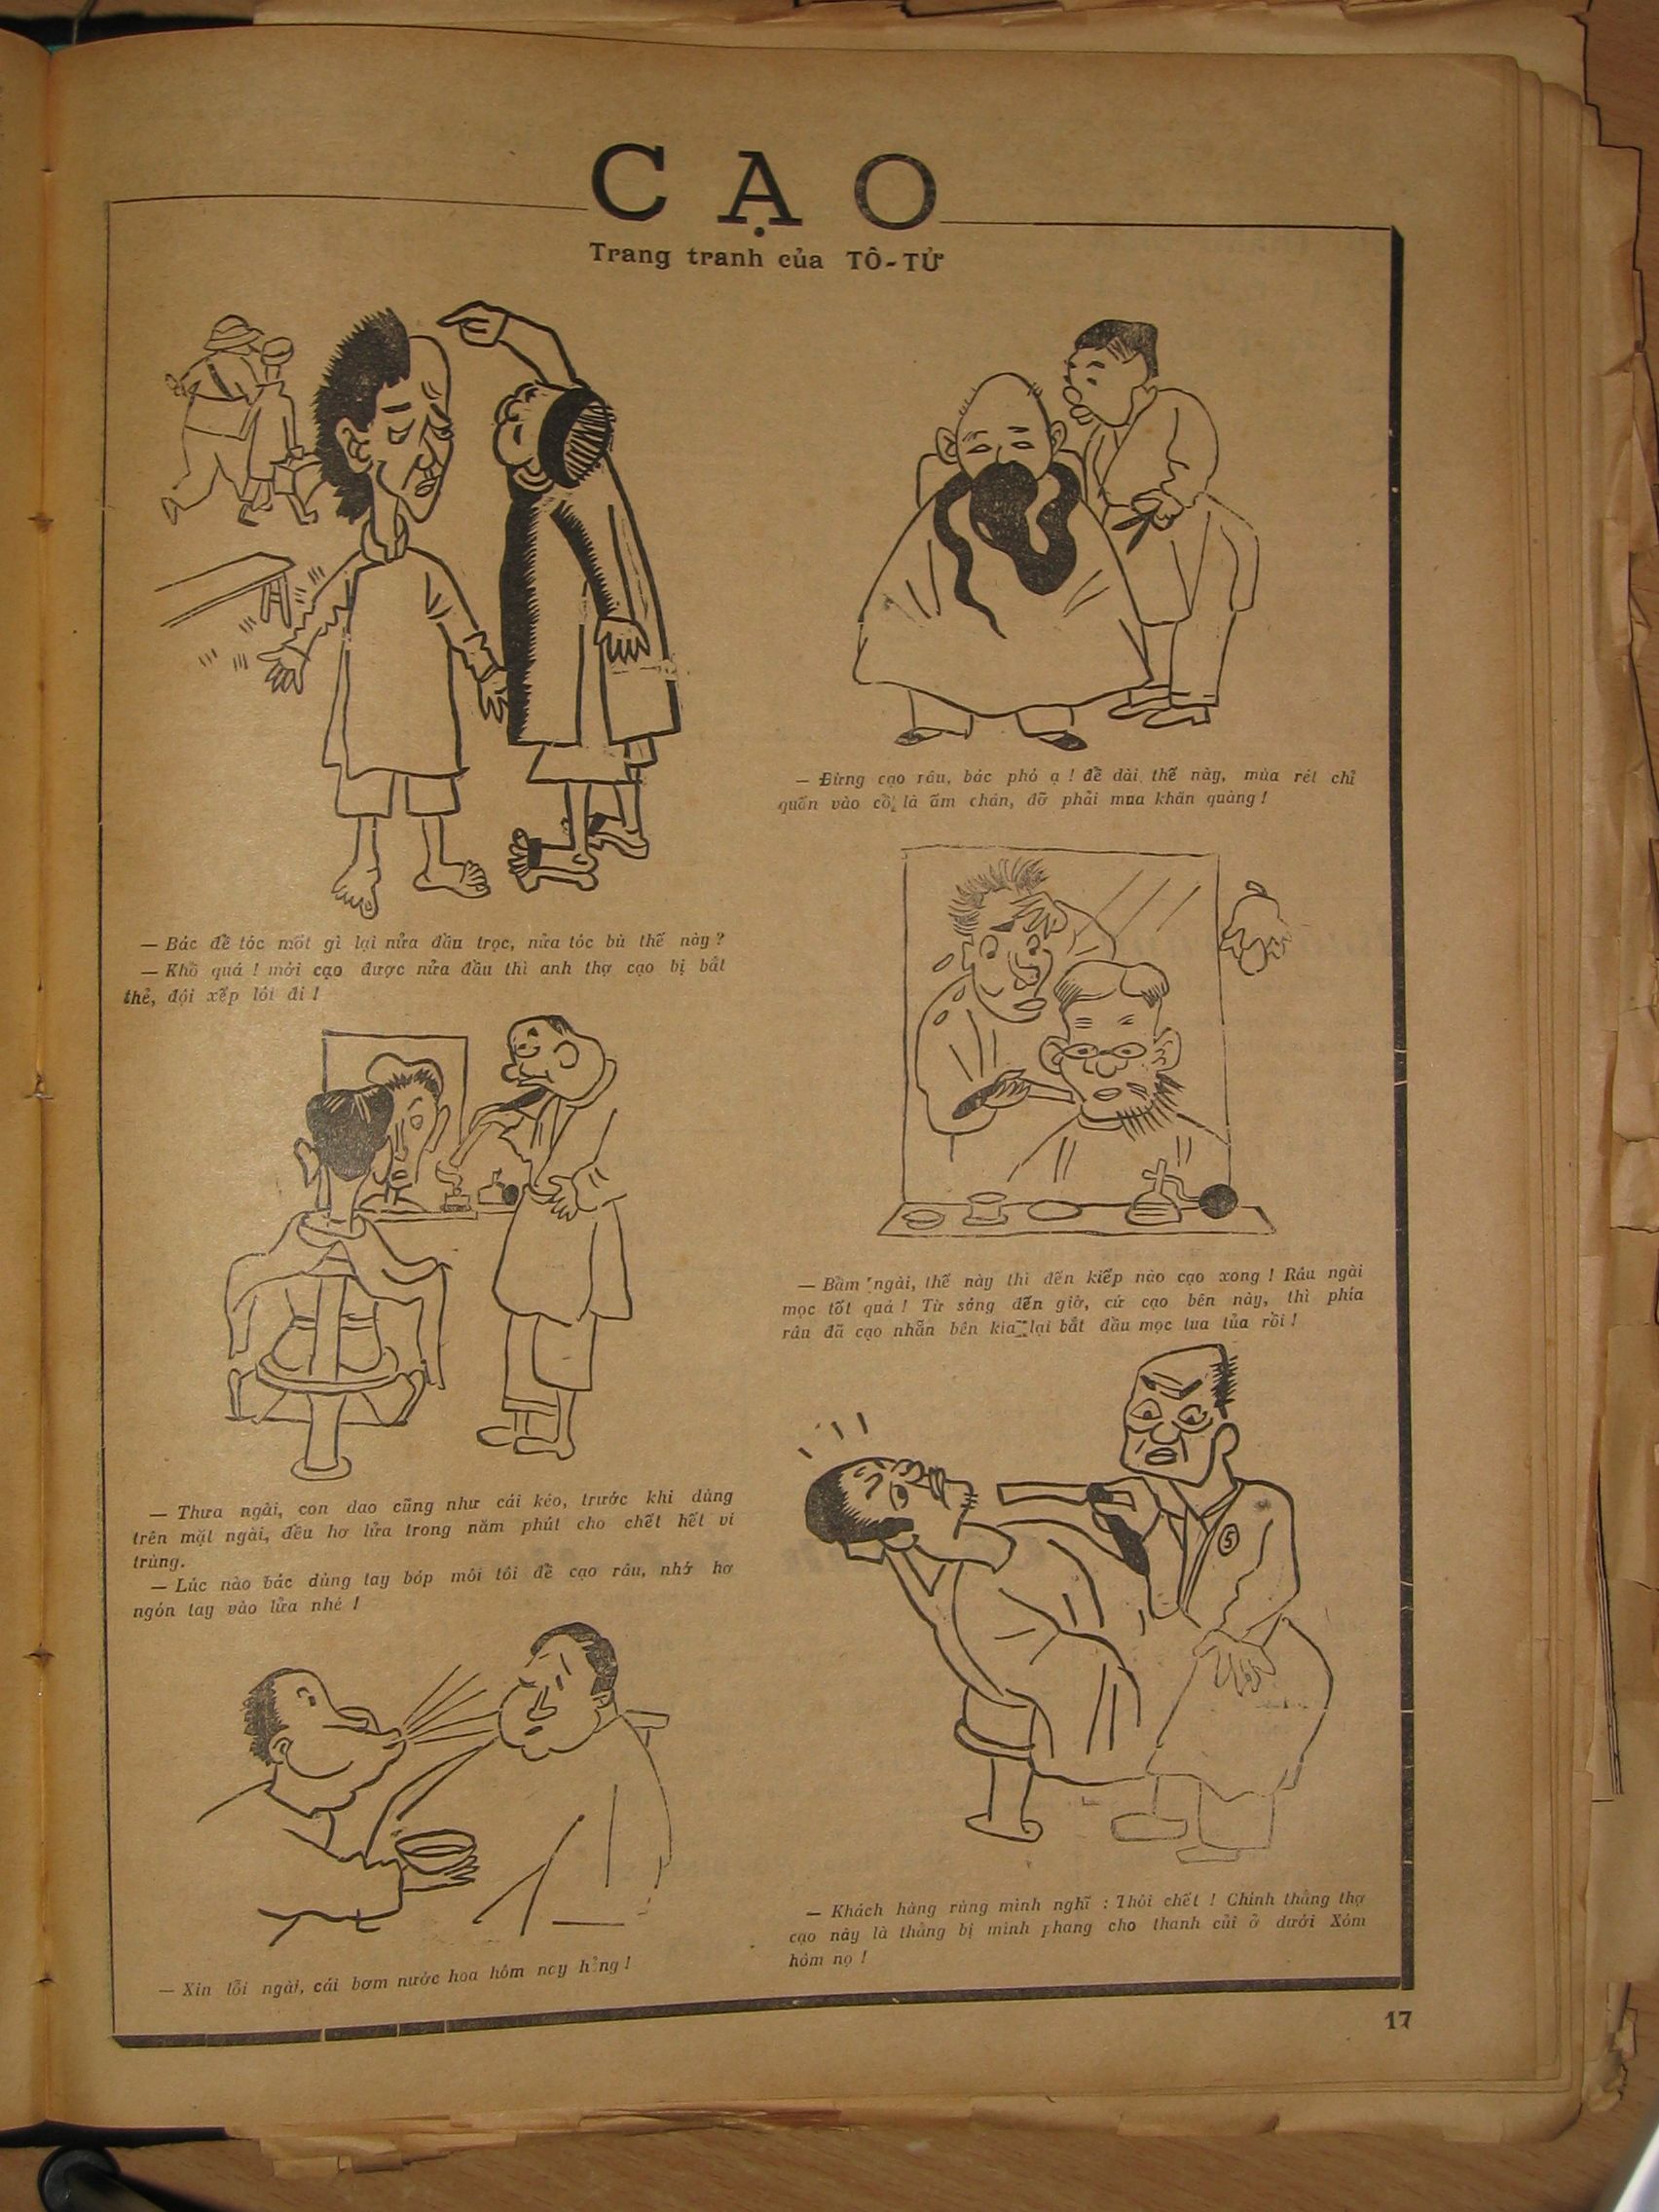 CẠO
Trang tranh của TÔ-TỬ
— Bác để tóc mốt gì lại nửa đầu trọc, nửa tóc bù thế này ?
— Khổ quá ! mới cạo được nửa đầu thì anh thợ cạo bị bắt
thẻ, đội xếp lôi đi !
— Thưa ngài, con dao cũng như cái kéo, trước khi dùng
trên mặt ngài, đều hơ lửa trong năm phút cho chết hết vi
trùng.
— Lúc nào bác dùng tay bóp môi tôi để cạo râu, nhớ hơ
ngón tay vào lửa nhé !
— Xin lỗi ngài, cái bơm nước hoa hôm nay hỏng !
— Đừng cạo râu, bác phó ạ ! để dài thế này, mùa rét chỉ
quấn vào cổ là ấm chán, đỡ phải mua khăn quàng !
— Bẩm ngài, thế này thì đến kiếp nào cạo xong ! Râu ngài
mọc tốt quá ! Từ sáng đến giờ, cứ cạo bên này, thì phía
râu đã cạo nhẵn bên kia lại bắt đầu mọc tua tủa rồi !
5
— Khách hàng rùng mình nghĩ : Thôi chết ! Chính thằng thợ
cạo này là thằng bị mình phang cho thanh củi ở dưới Xóm
hôm nọ !
17